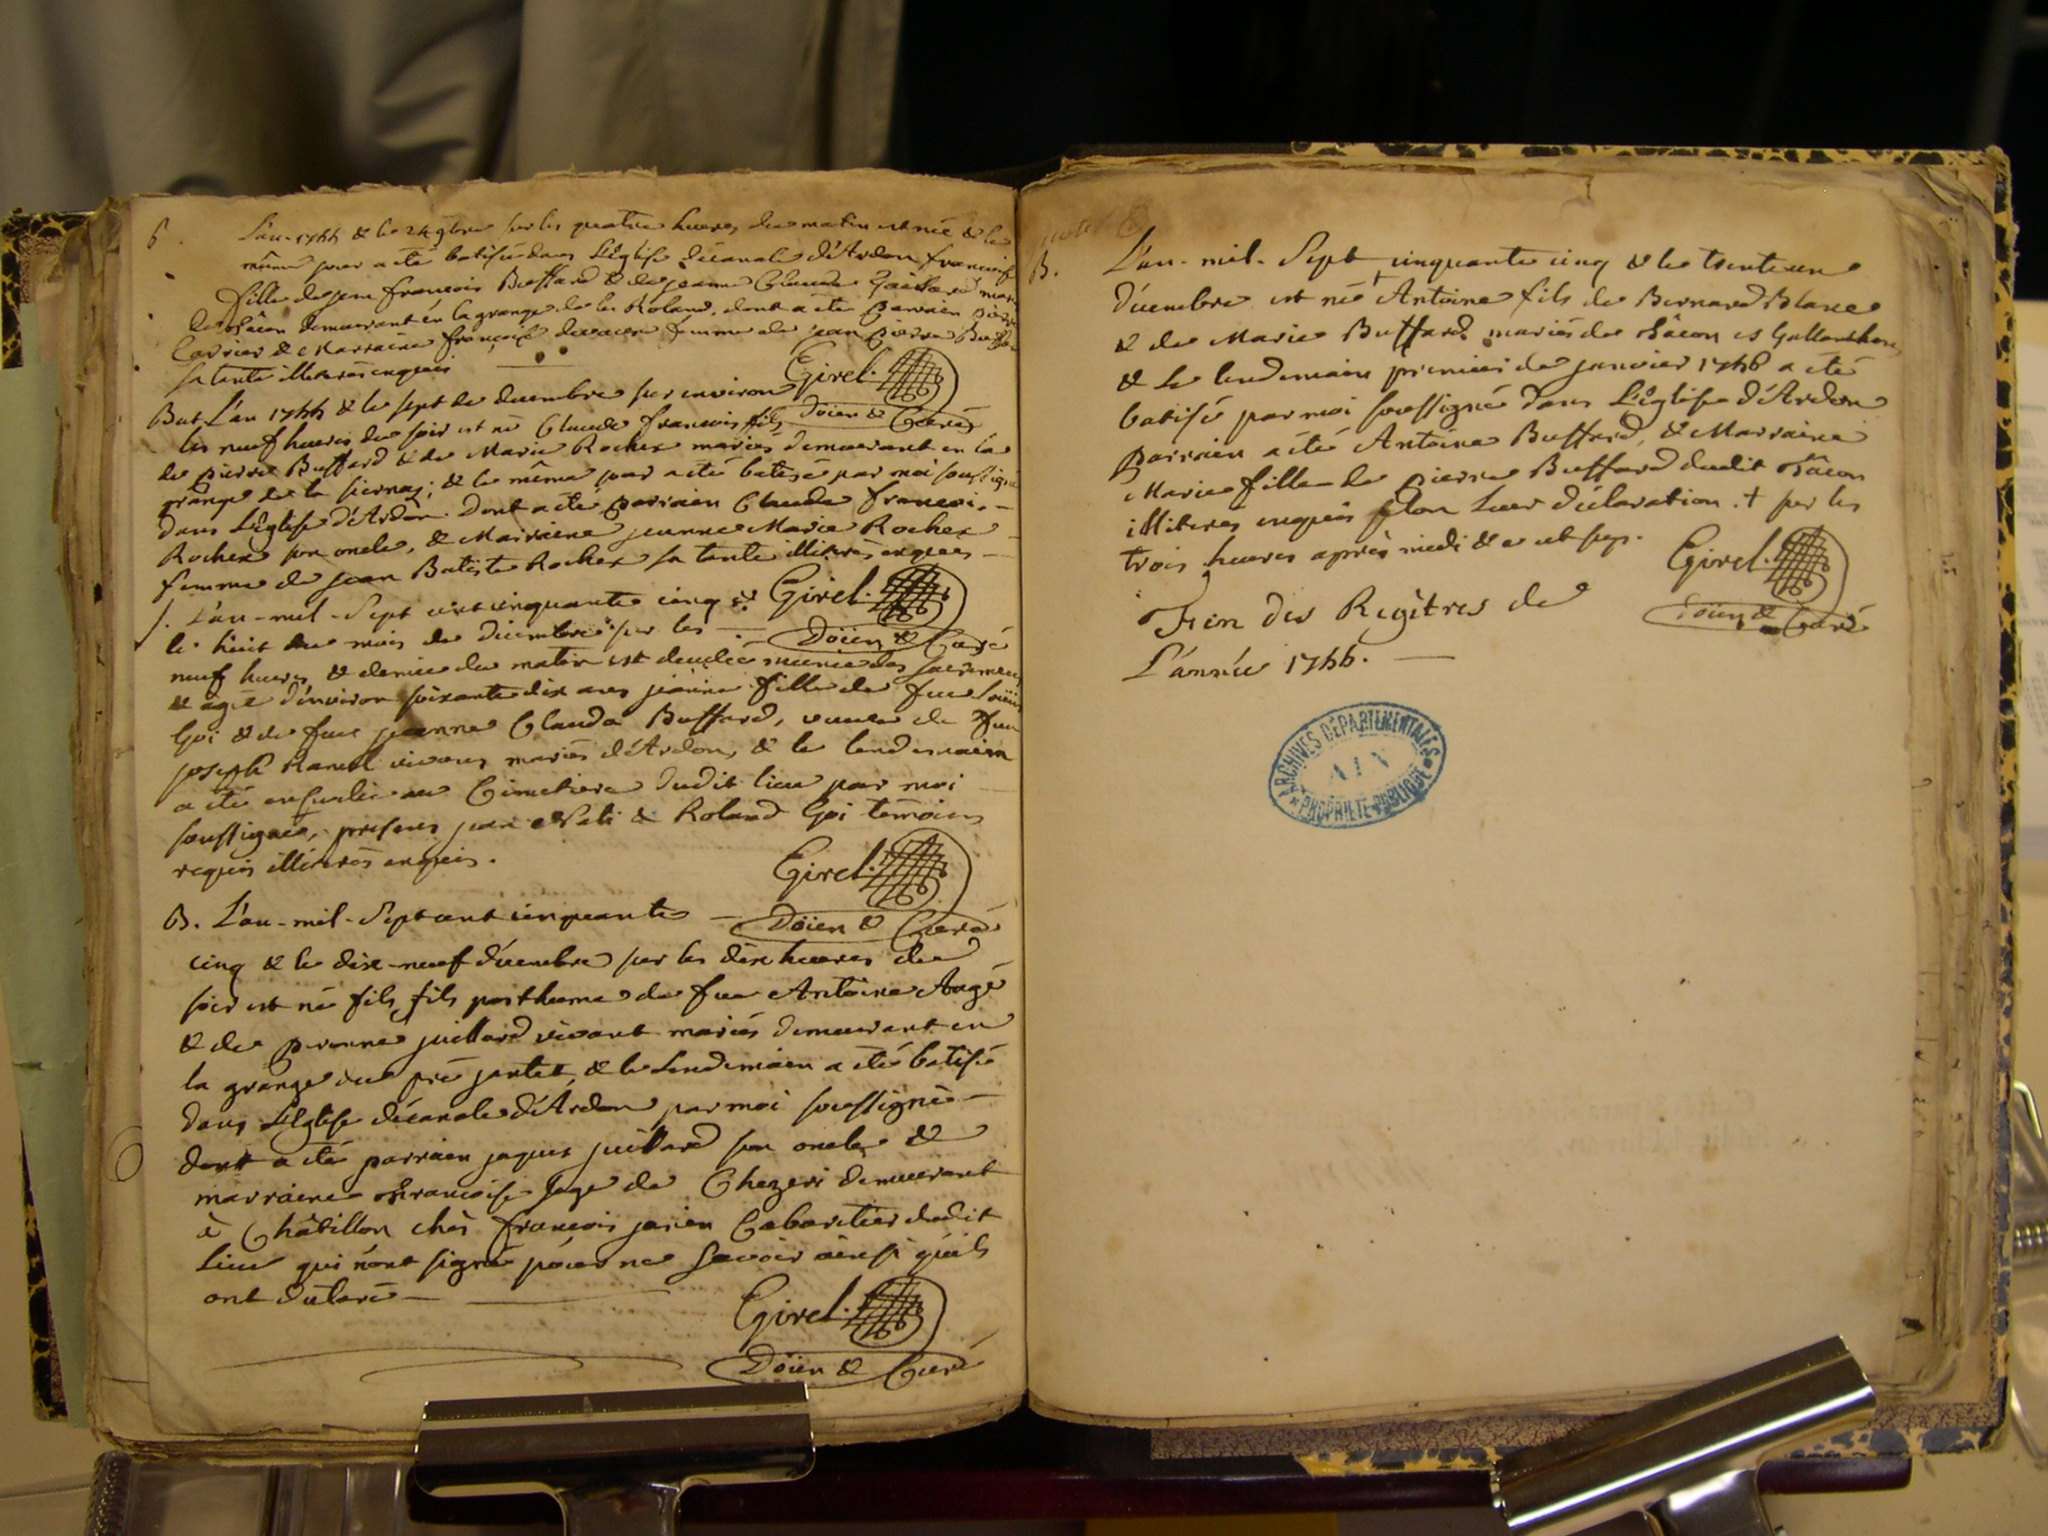 B. L'an 1755 & le 24 9bre sur les quatre heures du matin est née & le
même jour a été batisée dans L'Eglise décanale d'Ardon françoise
fille de jean françois Buffard & de jeanne Claude
demeurant en la grange de les Roland, dont a été parrain
Carrier & Marraine françoise femme de jean pierre
sa tante illiterés enquis
Girel.
Doien & Curé
Bat. L'an 1755 & le sept de decembre sur environ
les neuf heures du soir est né Claude francois fils
de pierre Buffard & de Marie Rochex mariés demeurant en la
grange de la ; & le même jour a été batisé par moi soussigné
dans L'Eglise d'Ardon dont a été parrain Claude françois
Rochex son oncle, & Marraine jeanne Marie Rochex
femme de jean Batiste Rochex sa tante illiterés enquis
Girel.
Doien & Curé
L'an-mil-Sept cent cinquante cinq &
le huit du mois de decembre sur les
neuf heures & demie du matin est decedée munie des sacremens
& agée d'environ soixante dix ans jeanne fille de feu Loüis
Goi & de fue jeanne Clauda Buffard, veuve de feu
joseph vivans mariés d'Ardon, & le lendemain
a été ensevelie au Cimetiere dudit lieu par moi
soussigné, presens jean & Roland Goi témoins
requis illiterés enquis.
Girel.
Doïen & Curé
B. L'an-mil-Sept cent cinquante
cinq & le dix-neuf décembre sur les dix heures du
soir est né fils, fils posthume de feu Antoine Augé
& de peronne juillard vivant mariés demeurant en
la grange du pré jantet, & le Lendemain a été batisé
dans L'Eglise décanale d'Ardon par moi soussigné
dont a été parrain jaques juillard son oncle &
marraine françoise de Chezeri demeurant
à Châtillon chés françois Cabartier dudit
Lieu qui n'ont signé pour ne savoir ainsi qu'ils
ont déclaré
Girel.
Doïen & Curé
B. L'an-mil-Sept cinquante cinq & le trente un
décembre est né + Antoine fils de Bernard Blanc
& de Marie Buffard mariés de
& le lendemain premier de janvier 1756 a été
batisé par moi soussigné dans L'Eglise d'Ardon
parrain a été Antoine Buffard, & Marraine
Marie fille de pierre Buffard dudit
illiteres enquis selon Leur déclaration. + sur les
trois heures après midi &
Girel.
Doïen & Curé
Fin des Regîtres de
L'année 1755.
ARCHIVES DÉPARTEMENTALES
AIN
PROPRIÉTÉ PUBLIQUE